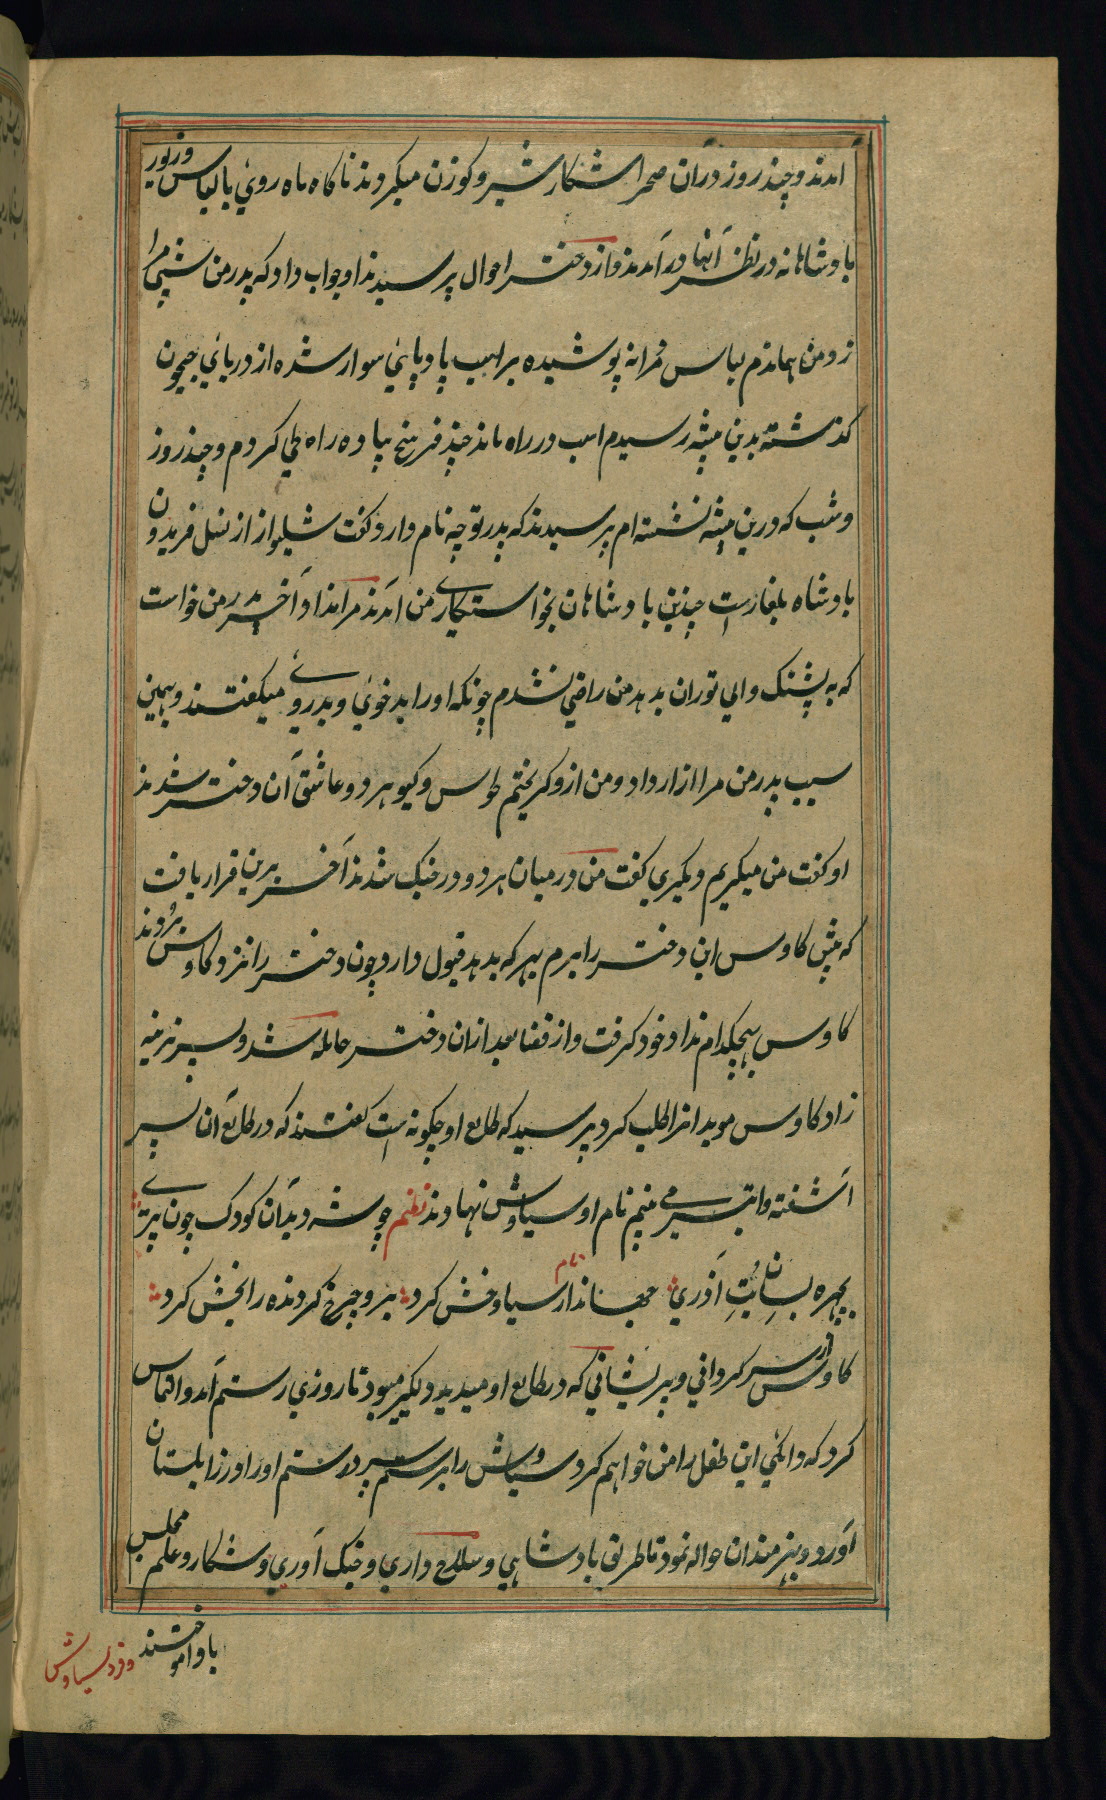 آمدند و چند روز در آن صحرا شکار شیر و کوزن میکردند ناکاه ماه روئی بالباس و زیور
بادشاهانه در نظر آنها در آمدند و از دختر احوال پرسیدند او جواب داد که پدر من شبی مرا
زد و من هماندم لباس مردانه پوشیده بر اسپ باد پائی سوار شده از دریائی جیحون
کذشته بدین بیشه رسیدم اسپ در راه ماند چند فرسخ پیاده راه طی کردم و چند روز
و شب که درین بیشه نشسته ام پرسیدند که پدر تو چه نام دارد کفت شیلواز از نسل فریدون
بادشاه بلغارست چندین بادشاهان بخواستکاری من آمدند مرا نداد آخر پدر من خواست
که به پشنک والی توران بدهد من راضی نشدم چونکه او را بدخوئی و بدروئی میکفتند و بهمین
سبب پدر من مرا ازار داد و من ازو کریختم طوس و کیو هر دو عاشق آن دختر شدند
او کفت من میکیرم و دیکری کفت من در میان هر دو در جنک شدند آخر برین قرار یافت
که پیش کاوس این دختر را برم بهر که بدهد قبول دارد چون دختر را نزد کاوس بردند
کاوس بهیچکدام نداد و خود کرفت و از قضا بعد ازان دختر حامله شد و پسر نرینه
زاد کاوس موبدانرا طلب کرد پرسید که طالع او چکونه است کفتند که در طالع آن پسر
آشفته و ابتری می بینم نام او سیاوش نهادند نظم چو شه دید آن کودک چون پری
بچهره بسان بت آذری جهاندار نام سیاوخش کرد برو چرخ کردنده را بخش کرد
کاوس از سرکردانی و پریشانی که در طالع او میدید دلکیر میبود تا روزی رستم آمد و التماس
کرد که دایکی این طفل را من خواهم کرد سیاوش را برستم سپرد رستم او را در زابلستان
آورد و بهنرمندان حواله نمود تا طریق بادشاهی و سلاح داری و جنک آوری و شکار و علم مجلس
باو آموختند
سیاوش